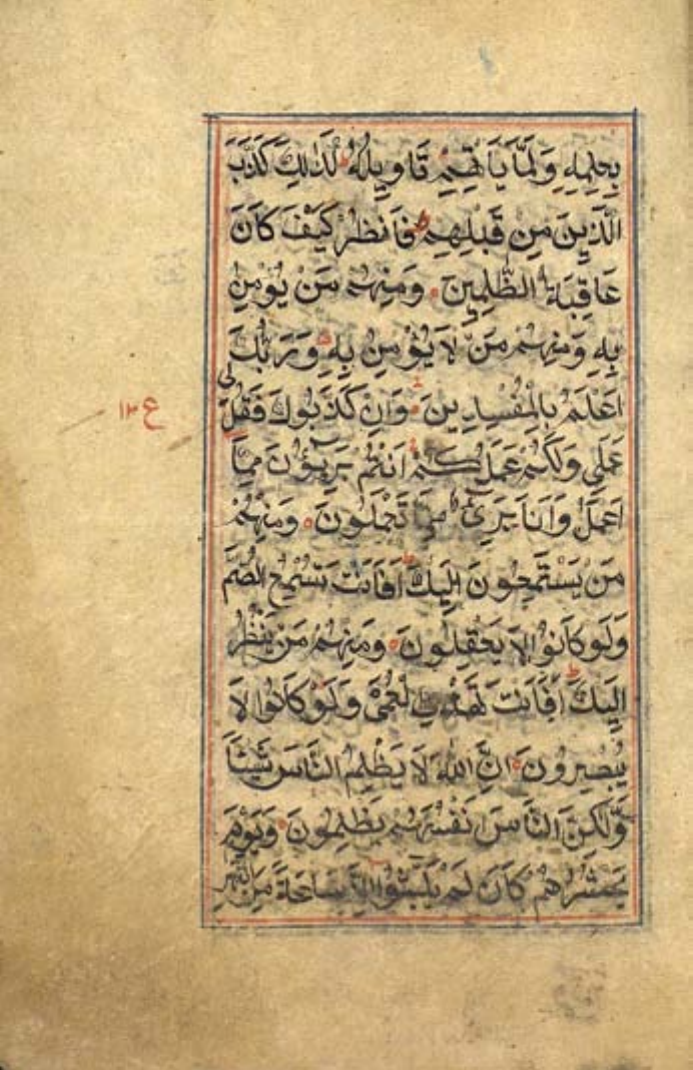 بِعِلْمِهِ وَلَمَّا يَأْتِهِمْ تَاوِيلُهُ ط كَذٰلِكَ كَذَّبَ
الَّذِينَ مِنْ قَبْلِهِمْ ط فَانْظُرْ كَيْفَ كَانَ
عَاقِبَةُ الظّٰلِمِينَ وَمِنْهُمْ مَنْ يُؤْمِنُ
بِهِ وَمِنْهُمْ مَنْ لَا يُؤْمِنُ بِهِ وَرَبُّكَ
اَعْلَمُ بِالْمُفْسِدِينَ وَاِنْ كَذَّبُوكَ فَقُلْ لِى
ع ١٣
عَمَلِي وَلَكُمْ عَمَلُكُمْ اَنْتُمْ بَرِيۤؤُنَ مِمَّا
اَعْمَلُ وَاَنَا بَرِيۤءٌ مِمَّا تَعْمَلُونَ وَمِنْهُمْ
مَنْ يَسْتَمِعُونَ اِلَيْكَ ط اَفَاَنْتَ تُسْمِعُ الصُّمَّ
وَلَوْ كَانُوا لَا يَعْقِلُونَ وَمِنْهُمْ مَنْ يَنْظُرُ
اِلَيْكَ ط اَفَاَنْتَ تَهْدِي الْعُمْىَ وَلَوْ كَانُوا لَا
يُبْصِرُونَ اِنَّ اللّٰهَ لَا يَظْلِمُ النَّاسَ شَيْئًا
وَّلٰكِنَّ النَّاسَ اَنْفُسَهُمْ يَظْلِمُونَ وَيَوْمَ
يَحْشُرُهُمْ كَاَنْ لَمْ يَلْبَثُوۤا اِلَّا سَاعَةً مِنَ النَّهَارِ